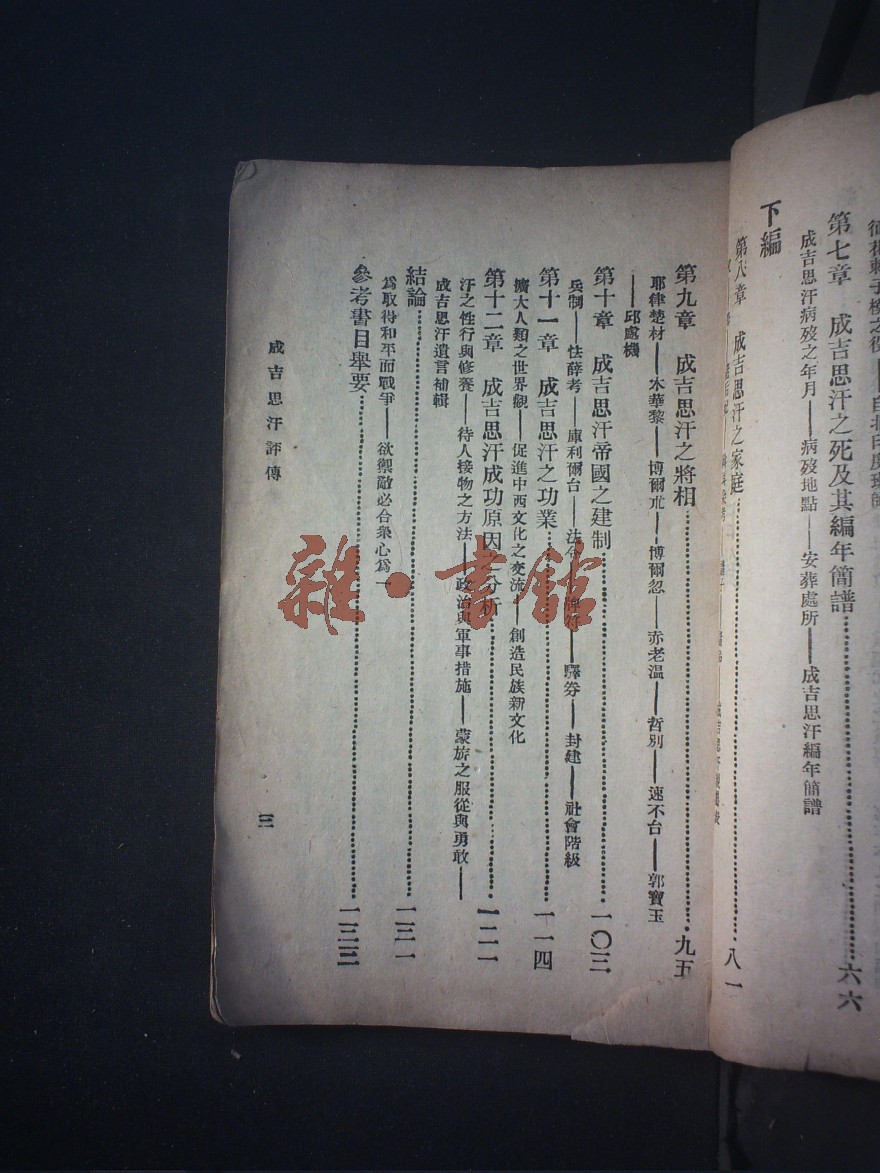 第七章　成吉思汗之死及其編年簡譜……六六
成吉思汗病歿之年月——病歿地點——安葬處所——成吉思汗編年簡譜
下編
第八章　成吉思汗之家庭……八一
第九章　成吉思汗之將相……九五
耶律楚材——木華黎——博爾朮——博爾忽——赤老溫——哲別——速不台——郭寶玉
——邱處機
第十章　成吉思汗帝國之建制……一〇三
兵制——怯薛考——庫利爾台——法令——牌符——驛券——封建——社會階級
第十一章　成吉思汗之功業……一一四
擴大人類之世界觀——促進中西文化之交流——創造民族新文化
第十二章　成吉思汗成功原因之分析……一二一
汗之性行與修養——待人接物之方法——政治與軍事措施——蒙族之服從與勇敢——
成吉思汗遺言補輯
結論……一三一
為取得和平而戰爭——欲禦敵必合衆心為一
參考書目舉要……一三三
成吉思汗評傳
三
雜·書館